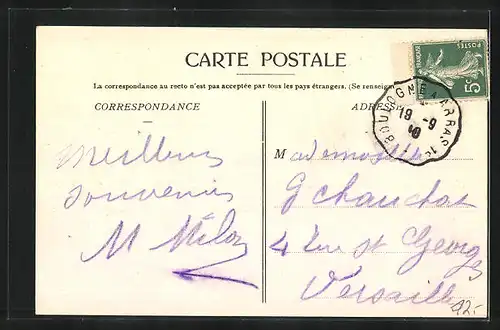 CARTE POSTALE
La correspondance au recto n'est pas acceptée par tous les pays étrangers. (Se renseign
CORRESPONDANCE
ADRESSE
POSTES
FRANÇAISE
5c
BOULOGNE A ARRAS 1o
19 -9
Meilleurs
souvenirs
M
Mademoiselle
G Chauchat
4 Rue St Georg
Versaille
12-